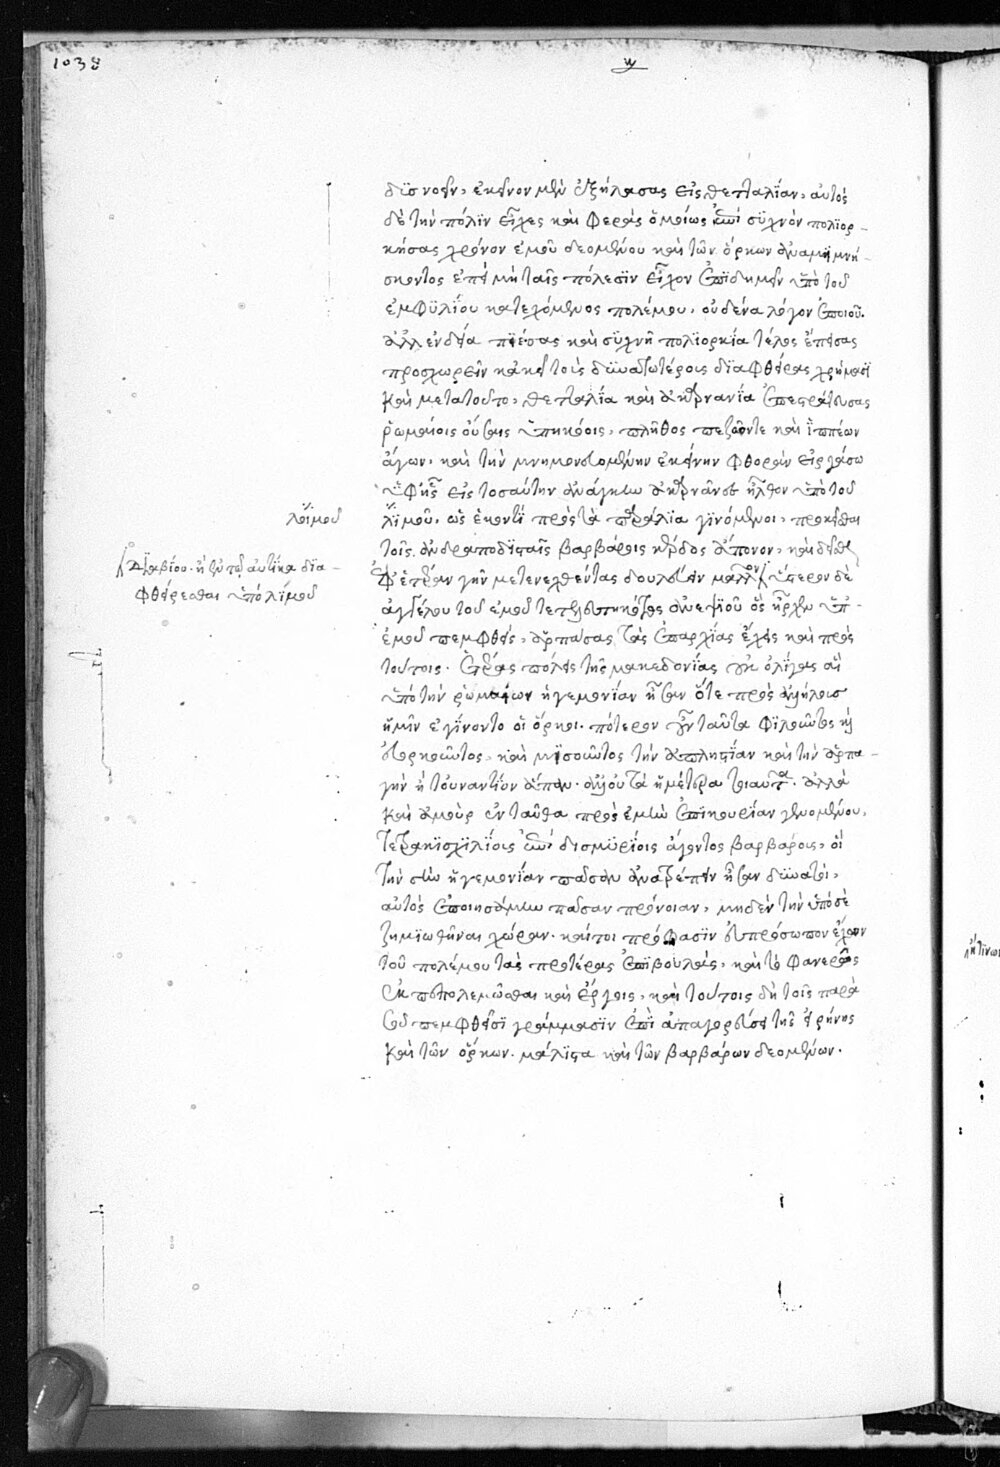 1038
δίσνοειν, ἐκεῖνον μὲν ἐξήλασας εἰς θετταλίαν, αὐτὸς
δὲ τὴν πόλιν εἷλες καὶ φερὰς ὁμοίως ἐπὶ συχνὸν πολιορ-
κήσας χρόνον ἐμοῦ δεομένου καὶ τῶν ὅρκων ἀναμιμνή-
σκοντος ἐπεὶ μὴ ταῖς πόλεσιν εἶχον ἐπιδημεῖν ὑπὸ τοῦ
ἐμφυλίου κατεχόμενος πολέμου, οὐδένα λόγον ἐποιοῦ.
ἀλλ' ἐνδεία πιέσας καὶ συχνῆ πολιορκία τέλος ἔπεισας
προσχωρεῖν κἀκεῖ τοὺς δυνατωτέροις διαφθείρας χρήμασι
καὶ μετὰ τοῦτο, θετταλία καὶ ἀκαρνανία ἐπεστράτευσας
ῥωμαίοις οὔσαις ὑπηκόοις, πλῆθος πεζῶντε καὶ ἱππέων
ἄγων, καὶ τὴν μνημονευομένην ἐκείνην φθορὰν εἰργάσω
ὑφ' ἧς εἰς τοσαύτην ἀνάγκην ἀκαρνᾶνες ἦλθον ὑπὸ τοῦ
λοίμοῦ
λιμοῦ, ὡς ἑκοντὶ πρὸς τὰ παράλια γινόμενοι, προκεῖσθαι
τοῖς ἀνδραποδισταῖς βαρβάροις κέρδος ἄπονον, καὶ δεῖσθαι
Δαβίου. ἢ ἐν τῇ αὐτίκα δια-
φθείρεσθαι ὑπὸ λιμοῦ
ἐφ' ἑτέραν γῆν μετενεχθέντας δουλεύειν μᾶλλον ὕστερον δὲ
ἀγγέλου τοῦ ἐμοῦ τετελευτηκότος ἀνεψιοῦ ὃς ἦρχεν ὑπ'
ἐμοῦ πεμφθεὶς, ἁρπάσας τὰς ἐπαρχίας ἔχεις καὶ πρὸς
τούτοις. ἑτέρας πόλεις τῆς μακεδονίας οὐκ ὀλίγας αἳ
ὑπὸ τὴν ῥωμαίων ἡγεμονίαν ἦσαν ὅτε πρὸς ἀλλήλους
ἡμῖν ἐγίνοντο οἱ ὅρκοι. πότερον οὖν ταῦτα φιλοῦντος ἢ
εὐορκοῦντος, καὶ μισοῦντος τὴν ἀπληστίαν καὶ τὴν ἁρπα-
γὴν ἢ τοὐναντίον ἅπαν. ἀλλ' οὐ τὰ ἡμέτερα τοιαῦτα. ἀλλὰ
καὶ ἀμοὺρ ἐνταῦθα πρὸς ἐμὴν ἐπικουρίαν γενομένου,
τετρακισχιλίοις ἐπὶ δισμυρίοις ἄγοντος βαρβάροις, οἳ
τὴν σὴν ἡγεμονίαν πᾶσαν ἀνατρέπειν ἦσαν δυνατοὶ,
αὐτὸς ἐποιησάμην πᾶσαν πρόνοιαν, μηδὲν τὴν ὑπὸ σὲ
ζημιωθῆναι χώραν. καίτοι πρόφασιν εὐπρόσωπον ἔχων
τοῦ πολέμου τὰς προτέρας ἐπιβουλὰς, καὶ τὸ φανερῶς
ἐκπεπολεμῶσθαι καὶ ἔργοις, καὶ τούτοις δὴ τοῖς παρὰ
σοῦ πεμφθεῖσι γράμμασιν ἐπὶ ἀπαγορεύσει τῆς εἰρήνης
καὶ τῶν ὅρκων. μάλιστα καὶ τῶν βαρβάρων δεομένων.